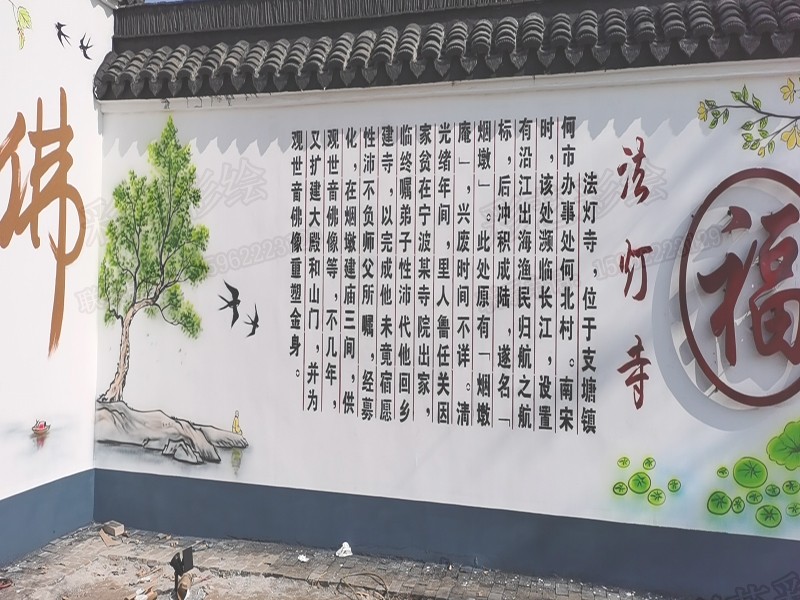 福
法灯寺
法灯寺，位于支塘镇
何市办事处何北村。南宋
时，该处濒临长江，设置
有沿江出海渔民归航之航
标，后冲积成陆，遂名「
烟墩」。此处原有「烟墩
庵」，兴废时间不详。清
光绪年间，里人鲁任关因
家贫在宁波某寺院出家，
临终嘱弟子性沛代他回乡
建寺，以完成他未竟宿愿
性沛不负师父所嘱，经募
化，在烟墩建庙三间，供
观世音佛像等，不几年，
又扩建大殿和山门，并为
观世音佛像重塑金身。
佛